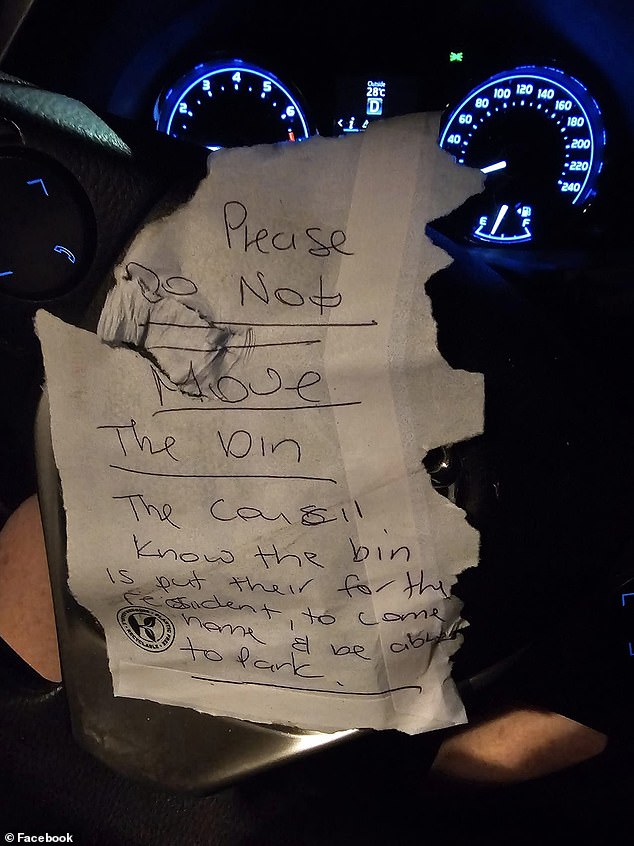 Outside
28°C
D
2 3 4 5 6
40 60 80 100 120 140 160 180 200 220 240
E F
Please
Do Not
Move
The bin
The Council
know the bin
is put their for the
resident, to come
home & be able
to park.
© Facebook